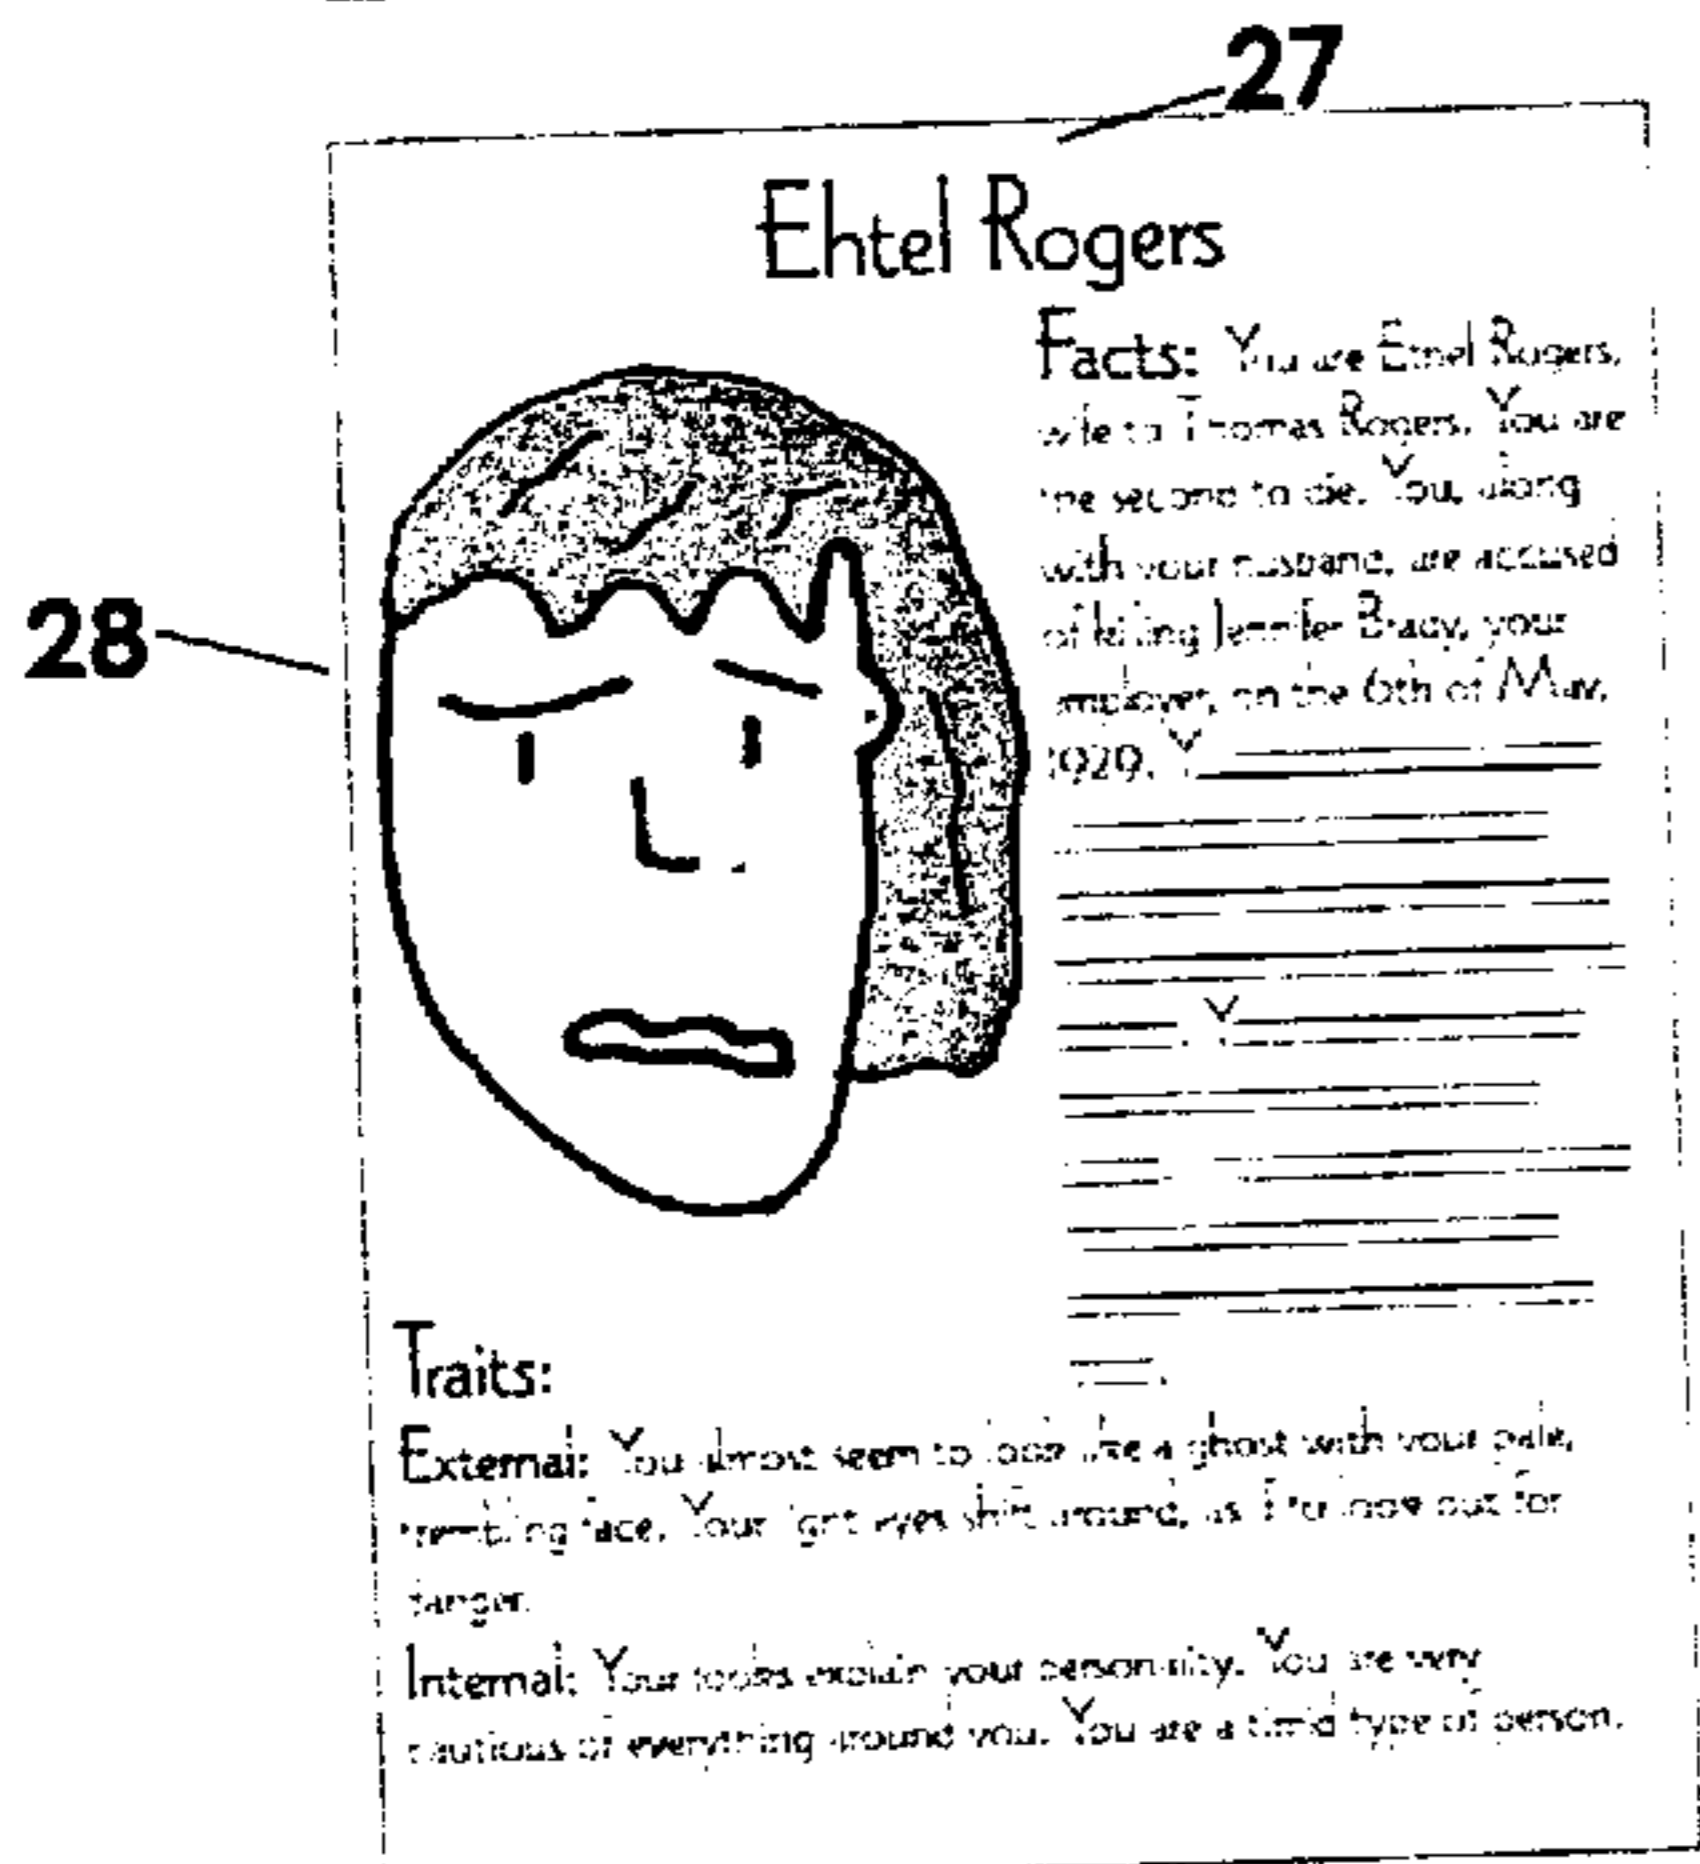 27
Ehtel Rogers
Facts: You are Ethel Rogers,
wife to Thomas Rogers. You are
the second to die. You, along
with your husband, are accused
of killing Jennifer Brady, your
employer, on the 6th of May,
1929.
28
Traits:
External: You almost seem to look like a ghost with your pale,
trembling face. Your light eyes shift around, as if to look out for
danger.
Internal: Your looks explain your personality. You are very
cautious of everything around you. You are a timid type of person.